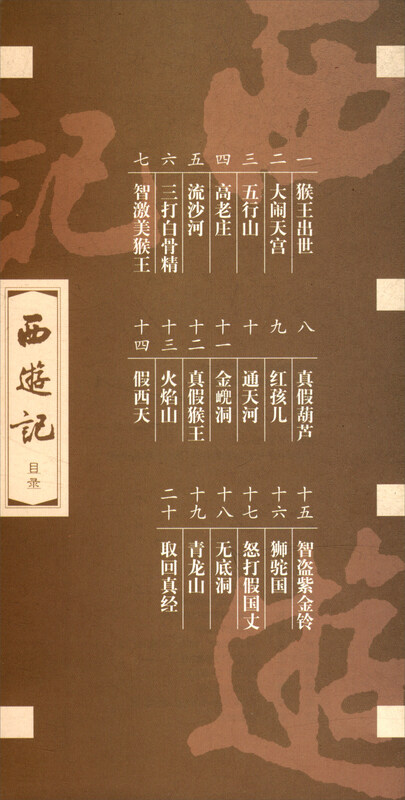 西遊記
目录
一 猴王出世
二 大闹天宫
三 五行山
四 高老庄
五 流沙河
六 三打白骨精
七 智激美猴王
八 真假葫芦
九 红孩儿
十 通天河
十一 金𠙶洞
十二 真假猴王
十三 火焰山
十四 假西天
十五 智盗紫金铃
十六 狮驼国
十七 怒打假国丈
十八 无底洞
十九 青龙山
二十 取回真经
西
遊
記